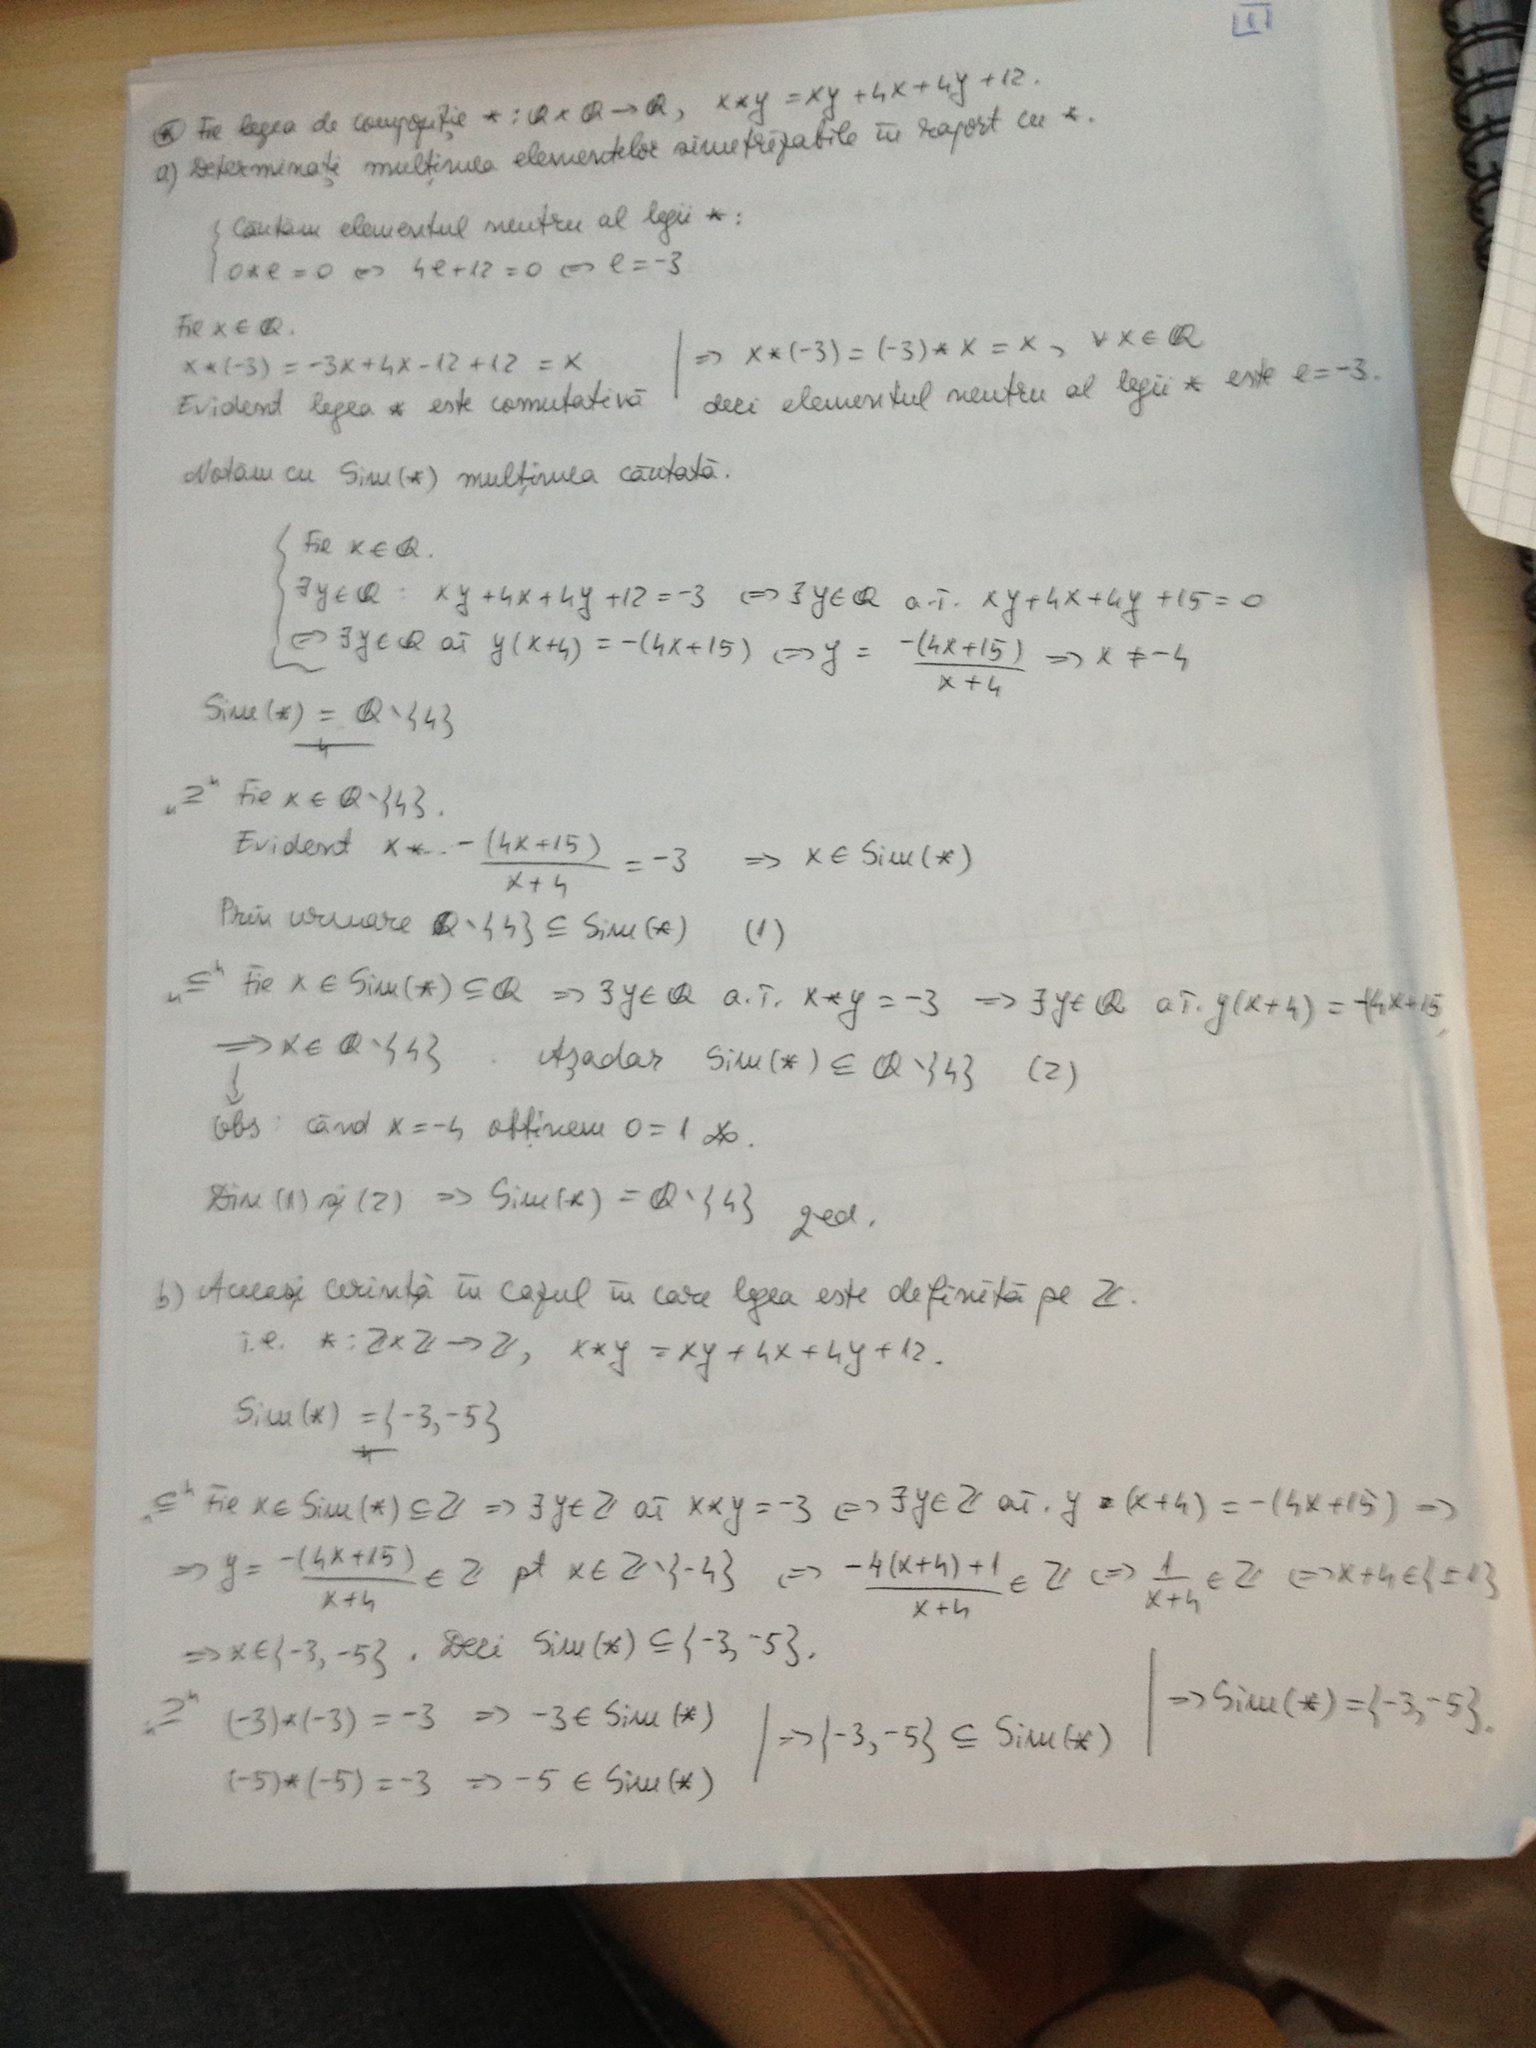 1
Fie legea de compoziție * : ℚ×ℚ→ℚ, x*y = xy+4x+4y+12.
a) Determinați mulțimea elementelor simetrizabile în raport cu *.
Căutăm elementul neutru al legii *:
0*e=0 ⇔ 4e+12=0 ⇔ e=-3
Fie x∈ℚ.
x*(-3) = -3x+4x-12+12 = x
Evident legea * este comutativă
⇒ x*(-3) = (-3)*x = x, ∀x∈ℚ
deci elementul neutru al legii * este e=-3.
Notăm cu Sim(*) mulțimea căutată.
Fie x∈ℚ.
∃y∈ℚ : xy+4x+4y+12=-3 ⇔ ∃y∈ℚ a.î. xy+4x+4y+15=0
⇔ ∃y∈ℚ aî y(x+4) = -(4x+15) ⇔ y = -(4x+15)/(x+4) ⇒ x≠-4
Sim(*) = ℚ∖{4}
„⊇" Fie x∈ℚ∖{4}.
Evident x* -(4x+15)/(x+4) = -3 ⇒ x∈Sim(*)
Prin urmare ℚ∖{4} ⊆ Sim(*) (1)
„⊆" Fie x∈Sim(*)⊆ℚ ⇒ ∃y∈ℚ a.î. x*y=-3 ⇒ ∃y∈ℚ aî. y(x+4) = -(4x+15)
⇒ x∈ℚ∖{4}. Așadar Sim(*) ⊆ ℚ∖{4} (2)
↓
Obs: când x=-4 obținem 0=1
Din (1) și (2) ⇒ Sim(*) = ℚ∖{4} qed.
b) Aceeași cerință în cazul în care legea este definită pe ℤ.
i.e. * : ℤ×ℤ→ℤ, x*y = xy+4x+4y+12.
Sim(*) = {-3,-5}
„⊆" Fie x∈Sim(*)⊆ℤ ⇒ ∃y∈ℤ aî x*y=-3 ⇔ ∃y∈ℤ aî. y (x+4) = -(4x+15) ⇒
⇒ y = -(4x+15)/(x+4) ∈ℤ pt x∈ℤ∖{-4} ⇔ (-4(x+4)+1)/(x+4) ∈ℤ ⇔ 1/(x+4) ∈ℤ ⇔ x+4∈{±1}
⇒ x∈{-3,-5}. Deci Sim(*) ⊆ {-3,-5}.
„⊇" (-3)*(-3) = -3 ⇒ -3∈Sim(*)
(-5)*(-5) = -3 ⇒ -5∈Sim(*)
⇒ {-3,-5} ⊆ Sim(*)
⇒ Sim(*) = {-3,-5}.